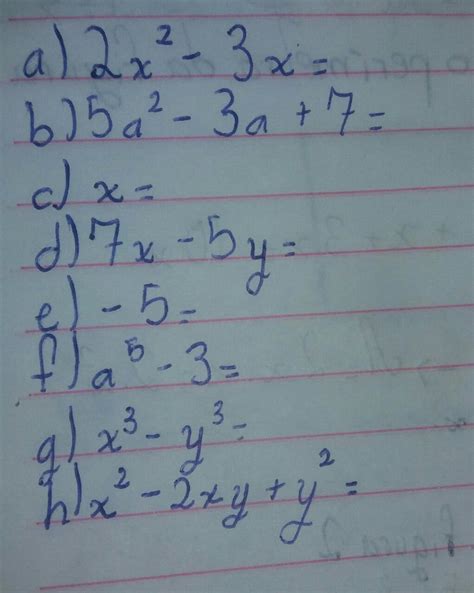 a) 2x² - 3x =
b) 5a² - 3a + 7 =
c) x =
d) 7x - 5y =
e) - 5 =
f) a⁵ - 3 =
g) x³ - y³ =
h) x² - 2xy + y² =